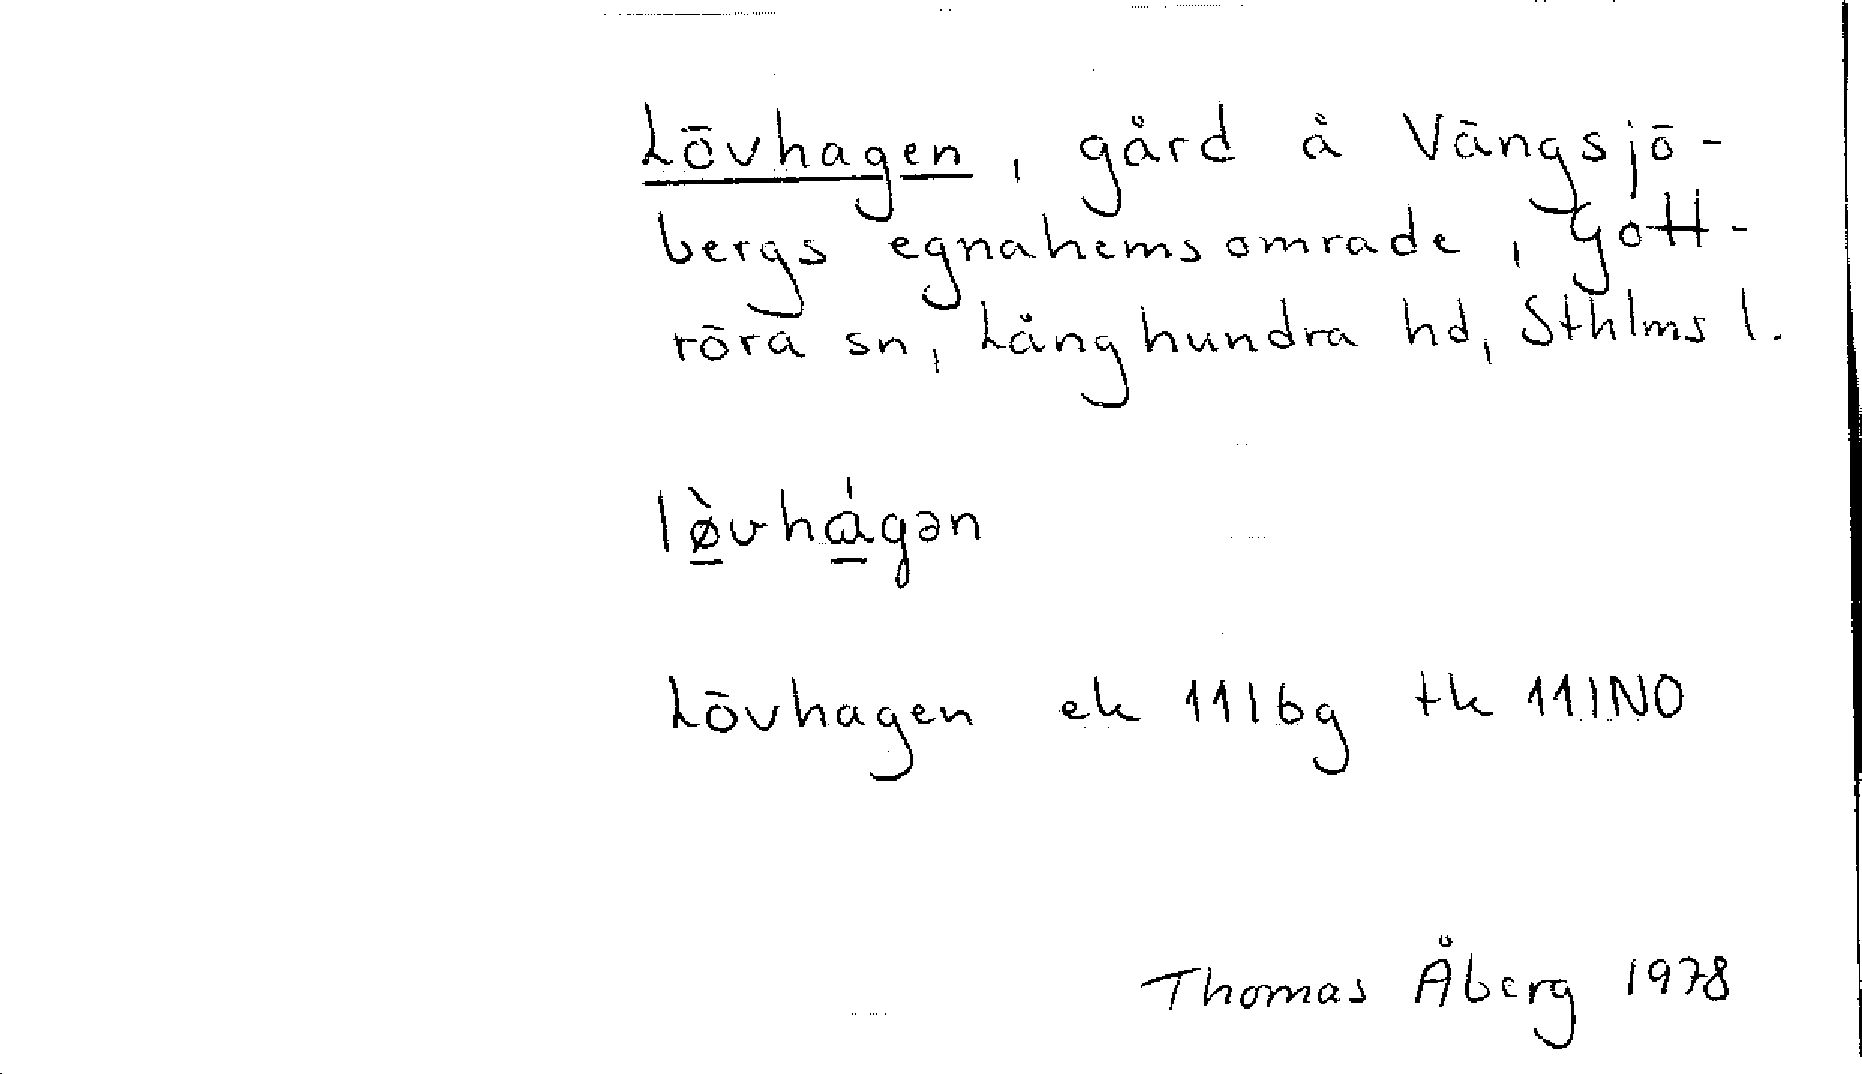 Lövhagen, gård å Vängsjö-
bergs egnahemsområde, Gott-
röra sn, Långhundra hd, Sthlms l.
lø̠̀vhɑ̠́gən
Lövhagen ek 11I6g tk 11INO
Thomas Åberg 1978